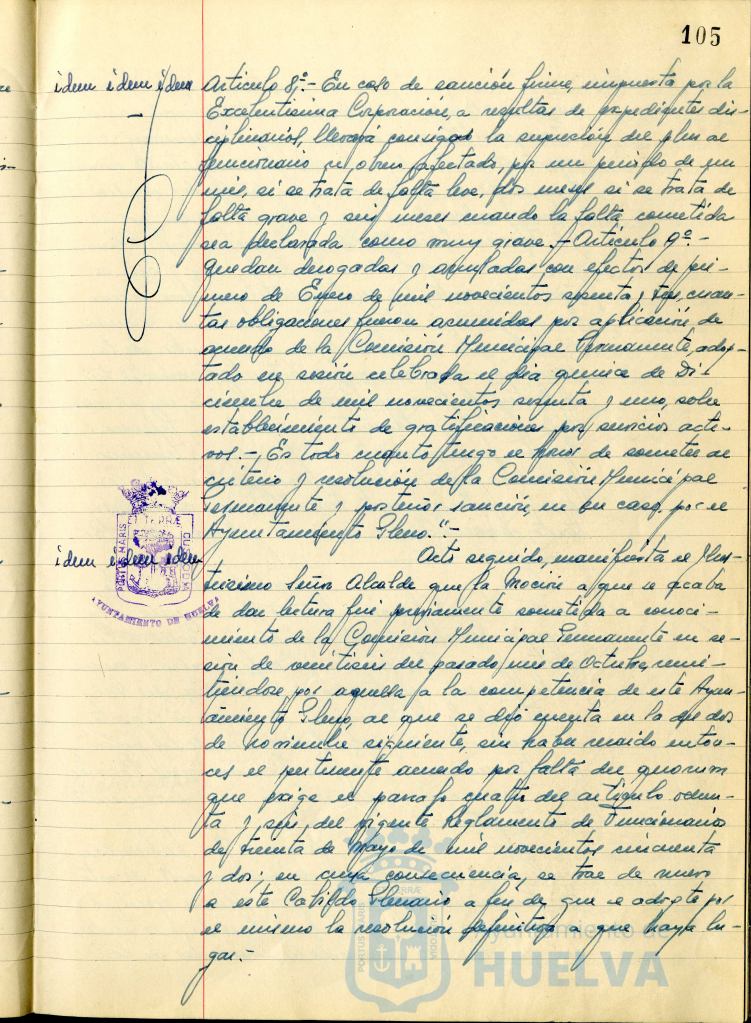 105
idem idem idem
Articulo 8º.- En caso de sanción firme, impuesta por la
Excelentisima Corporación, a resultas de expedientes dis-
ciplinarios, llevará consigo la supresión del plus al
funcionario u obrero afectado, por un periodo de un
mes, si se trata de falta leve, dos meses si se trata de
falta grave y seis meses cuando la falta cometida
sea declarada como muy grave.- Artículo 9º.-
Quedan derogadas y anuladas con efectos de pri-
mero de Enero de mil novecientos sesenta y tres, cuan-
tas obligaciones fueron asumidas por aplicación, de
acuerdo de la Comisión Municipal Permanente, adop-
tado en sesión celebrada el dia quince de Di-
ciembre de mil novecientos sesenta y uno, sobre
establecimiento de gratificaciones por servicios acti-
vos.- Es todo cuanto tengo el honor de someter al
criterio y resolución de la Comisión Municipal
Permanente y posterior sanción, en su caso, por el
Ayuntamiento Pleno."-
idem idem idem
Acto seguido, manifiesta el Ilus-
trisimo Señor Alcalde que la Moción a que se acaba
de dar lectura fué previamente sometida a conoci-
miento de la Comisión Municipal Permanente en se-
sión de veintiseis del pasado mes de Octubre, remi-
tiendose por aquella a la competencia de este Ayun-
tamiento Pleno, al que se dió cuenta en la de dos
de Noviembre siguiente, sin haber recaido enton-
ces el pertinente acuerdo por falta del quorum
que exige el parrafo cuatro del articulo ochen-
ta y seis, del vigente Reglamento de Funcionarios
de treinta de Mayo de mil novecientos cincuenta
y dos; en cuya consecuencia, se trae de nuevo
a este Cabildo Plenario a fin de que se adopte por
el mismo la resolución definitiva a que haya lu-
gar.-
PORTUS MARIS ET TERRÆ CUSTODIA
AYUNTAMIENTO DE HUELVA
PORTUS MARIS ET TERRÆ CUSTODIA
Ayuntamiento de
HUELVA